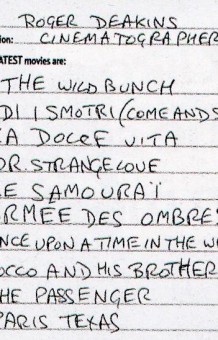 ROGER DEAKINS
ion: CINEMATOGRAPHER
ATEST movies are:
THE WILD BUNCH
DI I SMOTRI (COME AND S
A DOLCE VITA
OR STRANGELOVE
LE SAMOURAÏ
RMÉE DES OMBRES
NCE UPON A TIME IN THE W
OCCO AND HIS BROTHER
HE PASSENGER
PARIS TEXAS